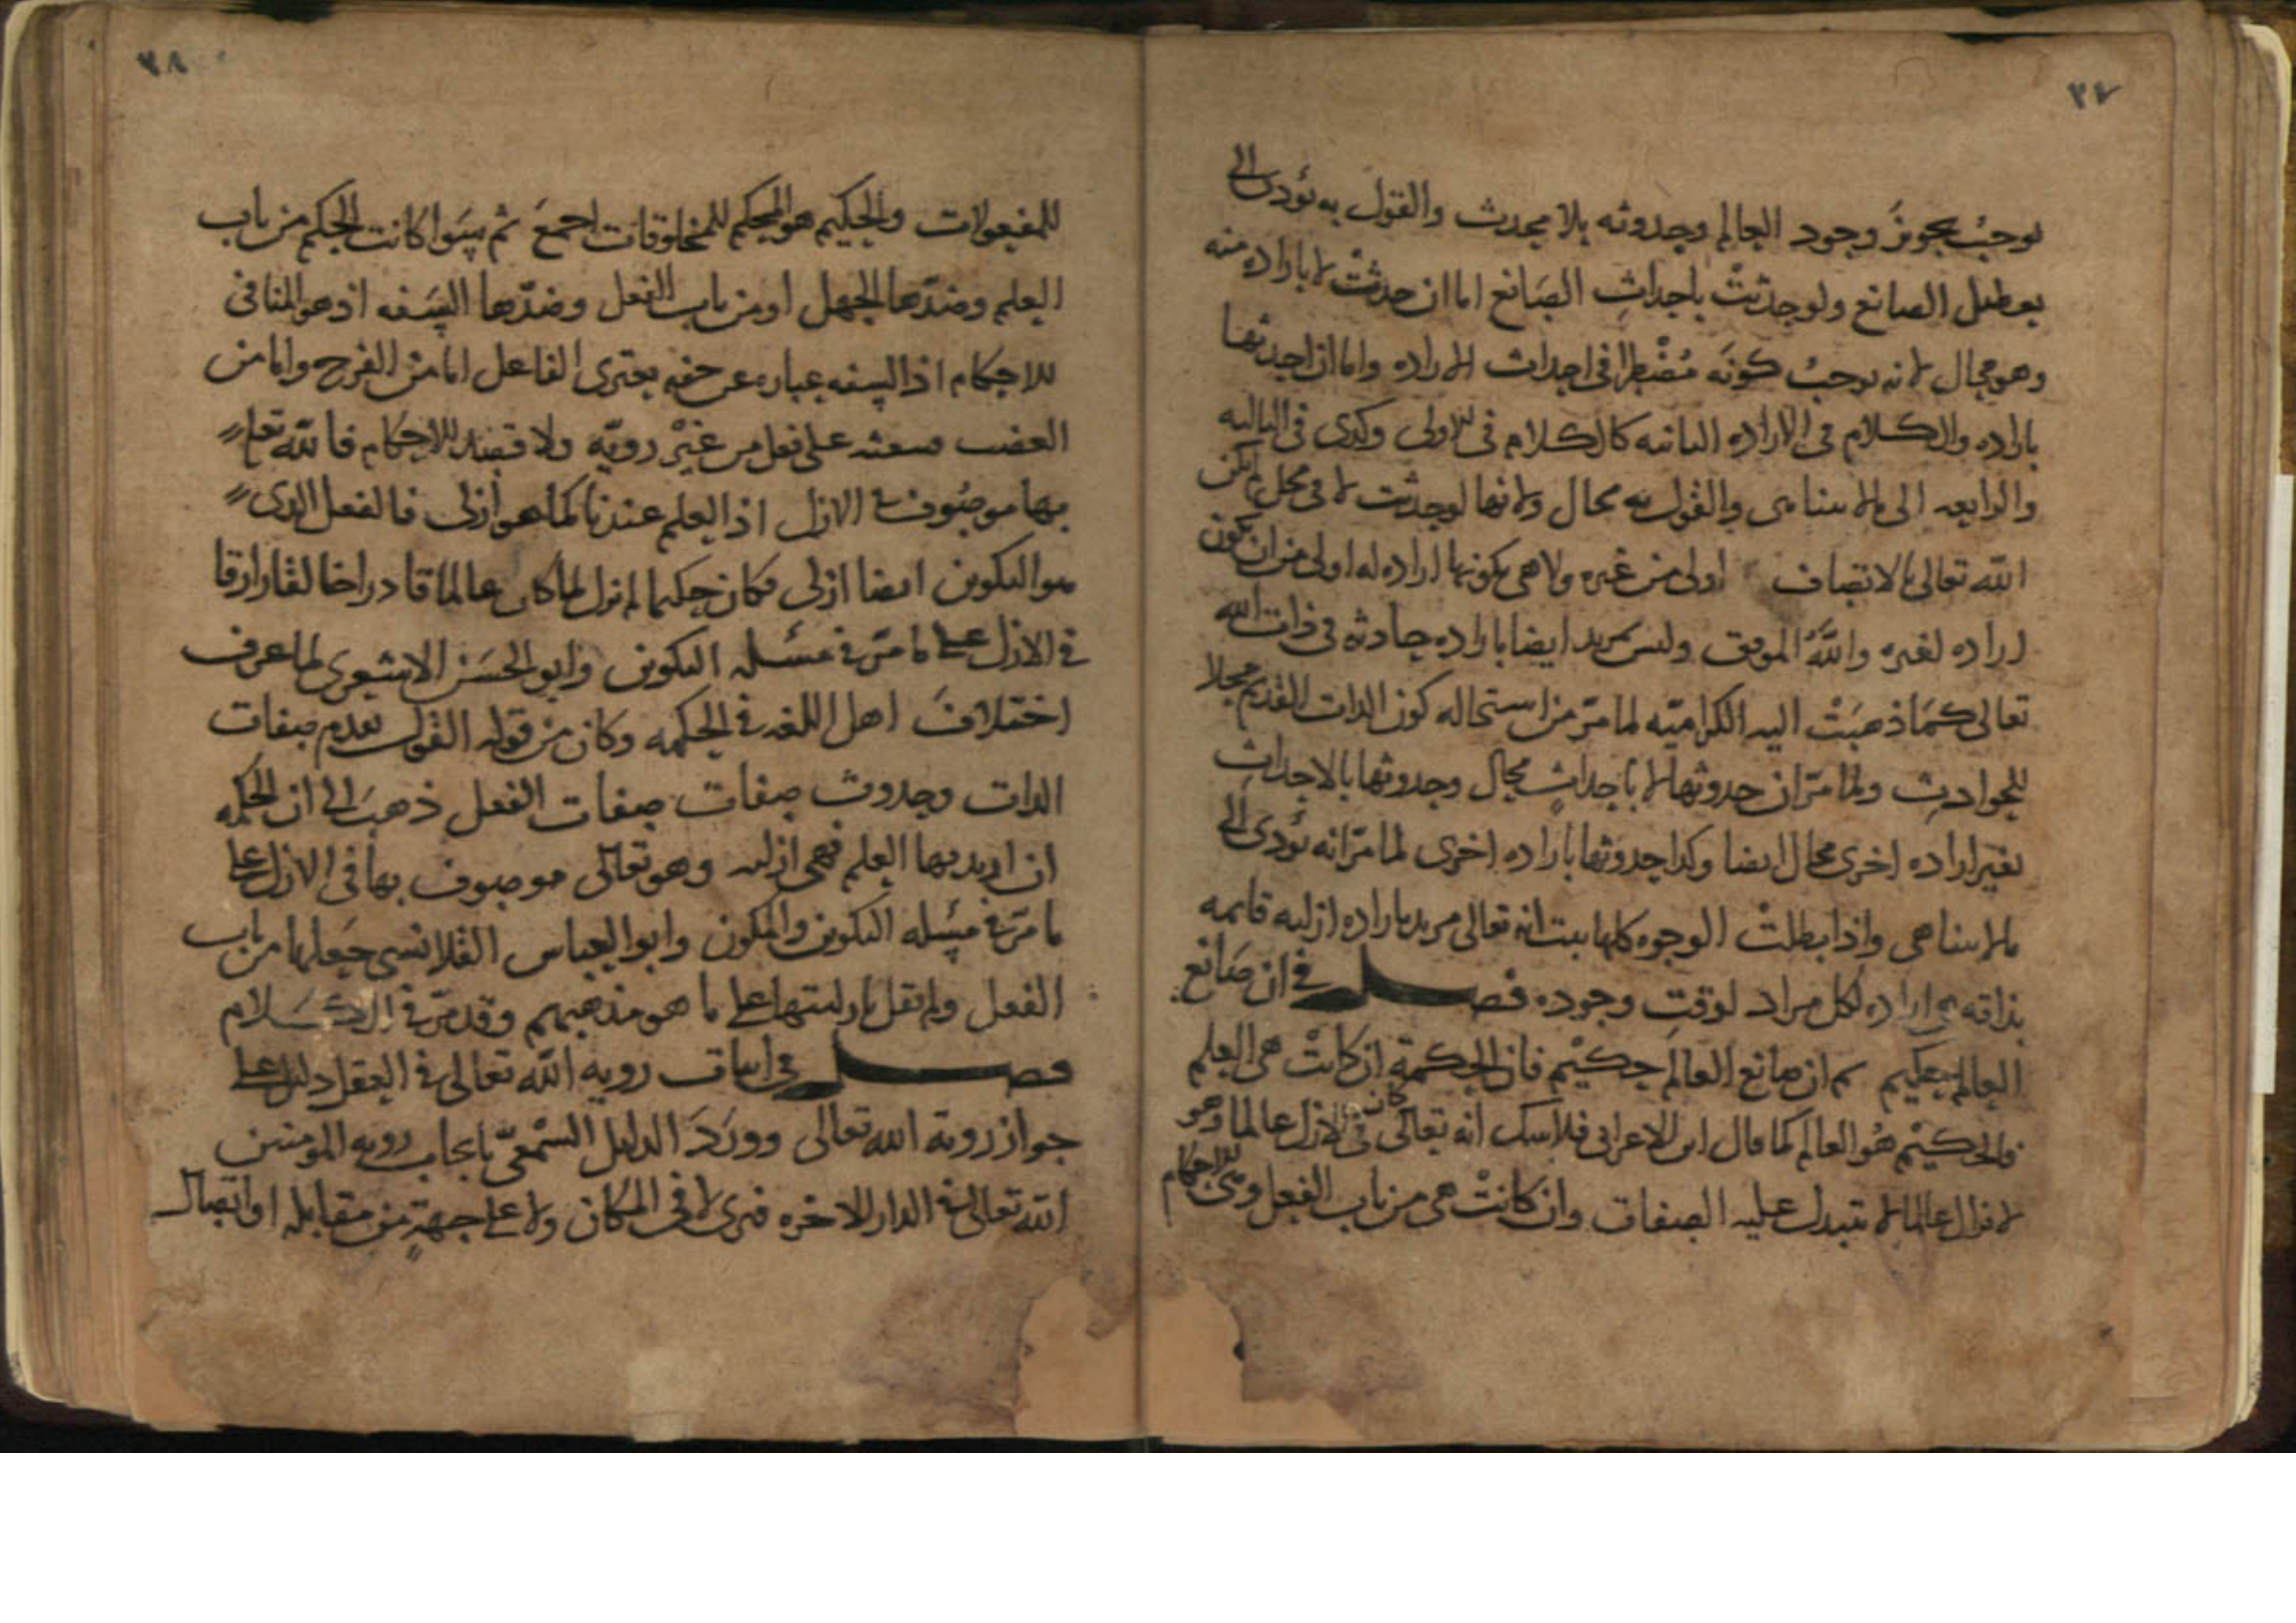 ٣٧
يوجب تجويز وجود العالم وحدوثه بلا محدث والقول به يؤدى الى
تعطيل الصانع ولو حدثت باحداث الصانع اما ان حدثت لا بارادة منه
وهو محال لانه يوجب كونه مضطرا فى احداث الارادة واما ان احدثها
بارادة والكلام فى الارادة الثانية كالكلام فى الاولى وكذى فى الثالثة
والرابعة الى ما لا يتناهى والقول به محال ولانها لو حدثت لا فى محل لم يكن
الله تعالى بالاتصاف اولى من غيره ولا هى بكونها ارادة له اولى من ان تكون
ارادة لغيره والله الموفق وليس بمريد ايضا بارادة حادثة فى ذات الله
تعالى كما ذهبت اليه الكرامية لما مر من استحالة كون الذات القديم محلا
للحوادث ولما مر ان حدوثها لا باحداث محال وحدوثها بالاحداث
بغير ارادة اخرى محال ايضا وكذا حدوثها بارادة اخرى لما مر انه يؤدى الى
ما لا يتناهى واذا بطلت الوجوه كلها ثبت انه تعالى مريد بارادة ازلية قائمة
بذاته هى ارادة لكل مراد لوقت وجوده فصل فى ان صانع
العالم حكيم ثم ان صانع العالم حكيم فان الحكمة ان كانت هى العلم
والحكيم هو العالم كما قال ابن الاعرابى فلا شك انه تعالى كان فى الازل عالما وهو
لا يزال عالما لا تتبدل عليه الصفات وان كانت هى من باب الفعل وهى الاحكام
٣٨
للمفعولات والحكيم هو المحكم للمخلوقات اجمع ثم سوا كانت الحكم من باب
العلم وضدها الجهل او من باب الفعل وضدها السفه اذ هو المنافى
للاحكام اذ السفه عبارة عن خفة يعترى الفاعل اما من الفرح واما من
الغضب فيبعثه على فعل من غير روية ولا قصد للاحكام فالله تعالى
بها موصوف فى الازل اذ العلم عندنا كما هو ازلى فالفعل الذى
هو التكوين ايضا ازلى فكان حكيما لم يزل كما كان عالما قادرا خالقا رازقا
فى الازل على ما مر فى مسئلة التكوين وابو الحسن الاشعرى لما عرف
اختلاف اهل اللغة فى الحكمة وكان من قوله القول بقدم صفات
الذات وحدوث صفات صفات الفعل ذهب الى ان الحكمة
ان اريد بها العلم فهى ازلية وهو تعالى موصوف بها فى الازل على
ما مر فى مسئلة التكوين والمكون وابو العباس القلانسى جعلها من باب
الفعل ولم يقل بازليتها على ما هو مذهبهم وقد مر فى الكلام
فصل فى اثبات رويه الله تعالى فى العقل دليل على
جواز روية الله تعالى وورد الدليل السمعى بايجاب رويه المومنين
الله تعالى فى الدار الاخره فيرى لا فى المكان ولا على جهة من مقابله او اتصال